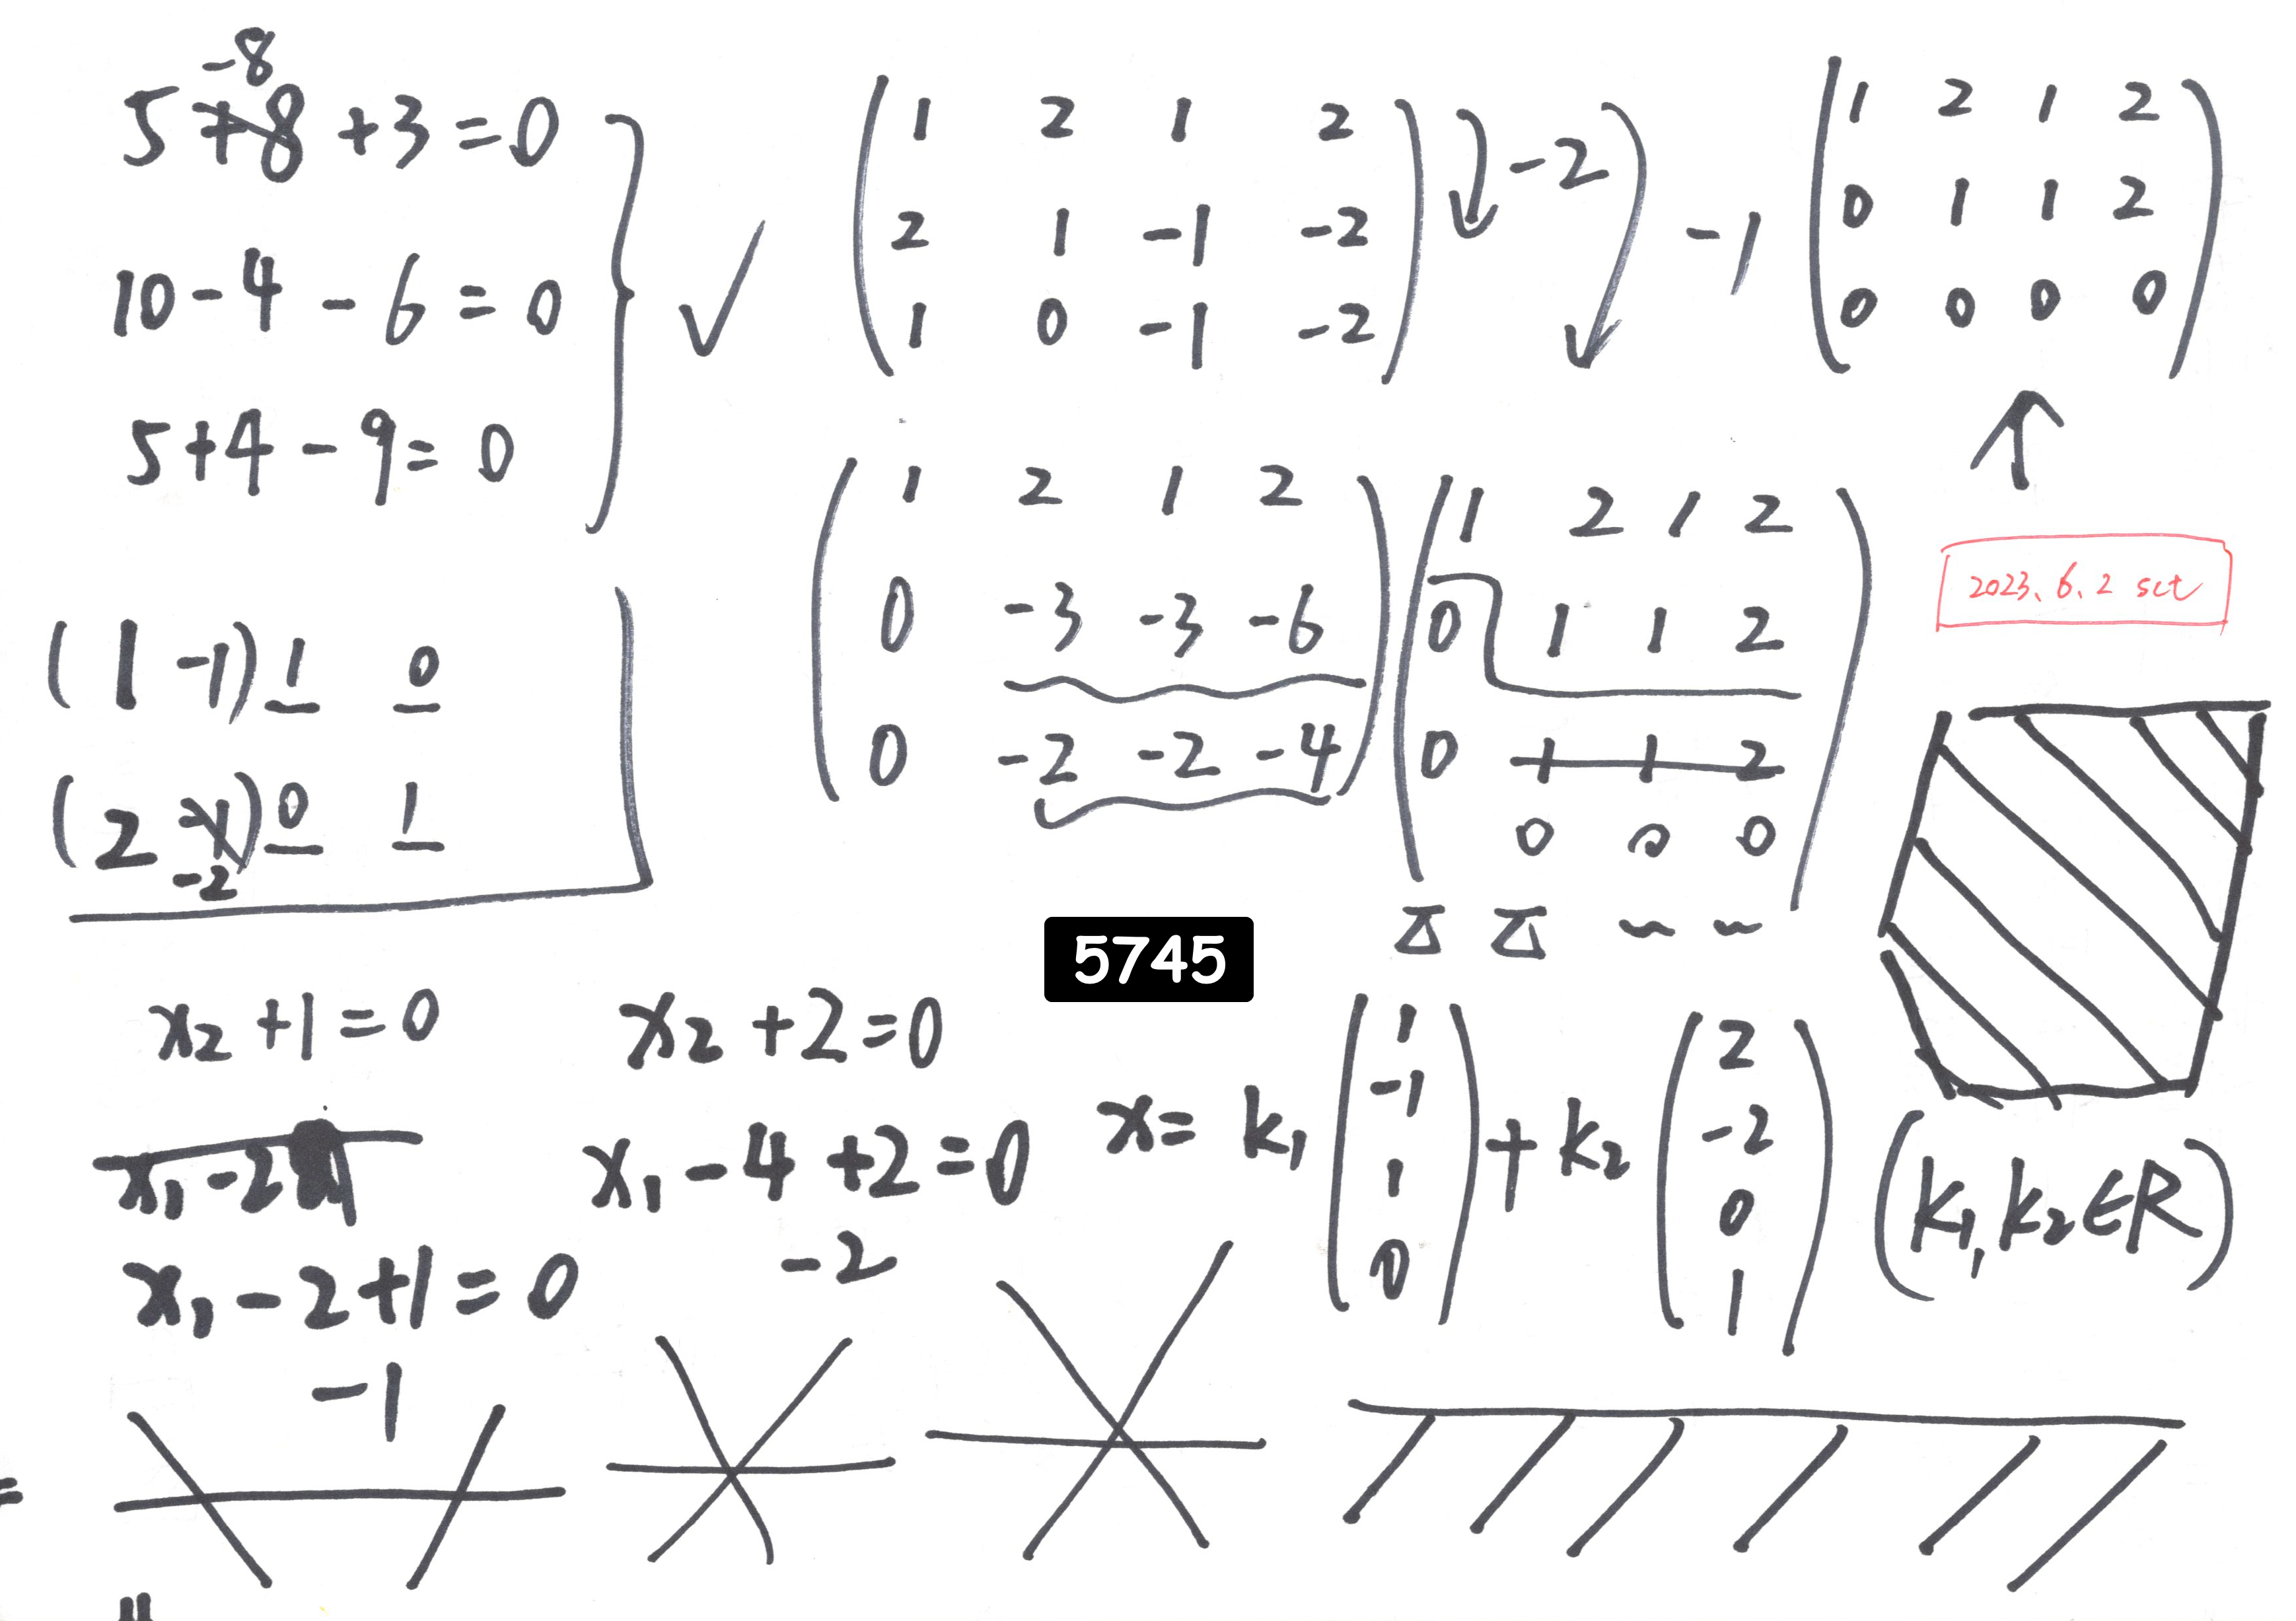 -8
5 +8 +3 = 0
10 - 4 - 6 = 0
5 + 4 - 9 = 0
1 2 1 2
2 1 -1 -2
1 0 -1 -2
-2
-1
1 2 1 2
0 1 1 2
0 0 0 0
1 2 1 2
0 -3 -3 -6
0 -2 -2 -4
1 2 1 2
0 1 1 2
0 1 1 2
0 0 0
2023. 6. 2
(1 -1) 1 0
(2 -1) 0 1
-2
5745
x2 + 1 = 0
x1 - 2
x1 - 2 + 1 = 0
-1
x2 + 2 = 0
x1 - 4 + 2 = 0
-2
x = k1 (1 -1 1 0) + k2 (2 -2 0 1) (k1, k2 ∈ R)